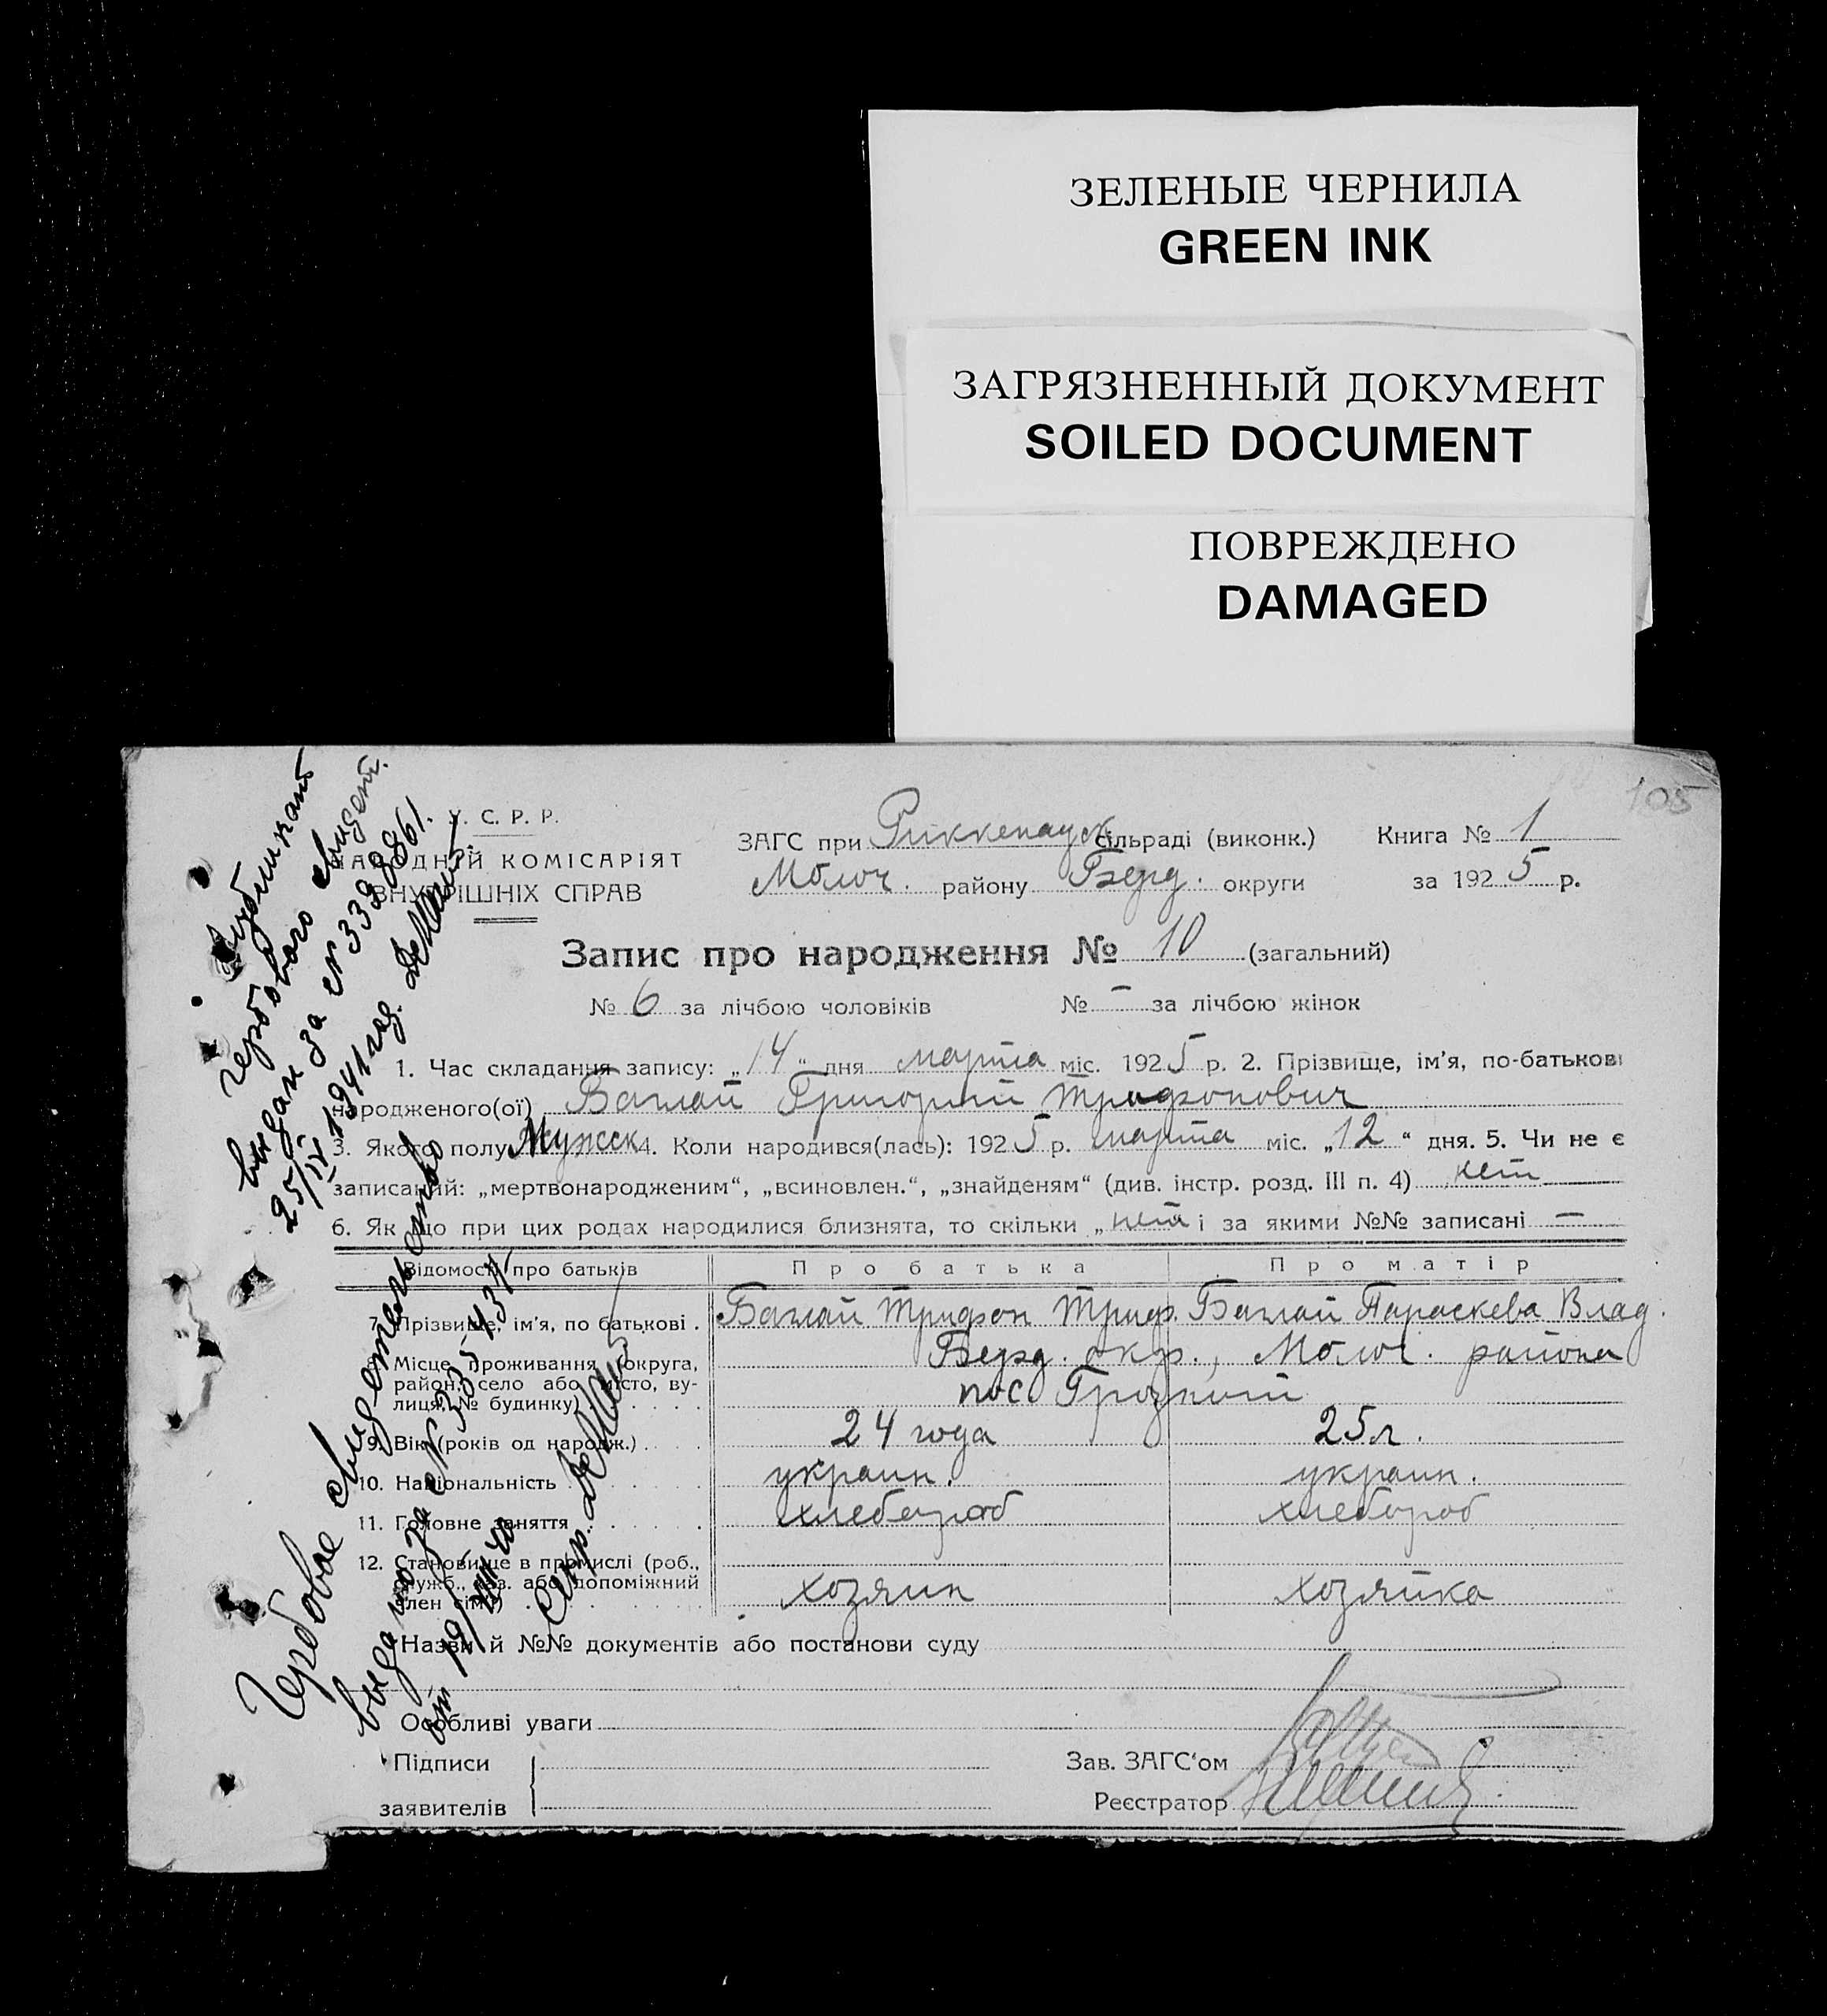 ЗЕЛЕНЫЕ ЧЕРНИЛА
GREEN INK
ЗАГРЯЗНЕННЫЙ ДОКУМЕНТ
SOILED DOCUMENT
ПОВРЕЖДЕНО
DAMAGED
105
У. С. Р. Р.
НАРОДНІЙ КОМІСАРІЯТ
ВНУТРІШНІХ СПРАВ
ЗАГС при Риккенауск сільраді (виконк.) Книга № 1
Молоч. району Берд. округи за 1925 р.
Запис про народження № 10 (загальний)
№ 6 за лічбою чоловіків № — за лічбою жінок
1. Час складання запису: „14“ дня марта міс. 1925 р. 2. Прізвище, ім’я, по-батькові
народженого(ої) Баглай Григорий Трифонович
3. Якого полу Мужск 4. Коли народився(лась): 1925 р. марта міс. „12“ дня. 5. Чи не є
записаний: „мертвонародженим“, „всиновлен.“, „знайденям“ (див. інстр. розд. III п. 4) нет
6. Як що при цих родах народилися близнята, то скільки „нет і за якими №№ записані —
Відомості про батьків Про батька Про матір
7. Прізвище, ім’я, по батькові . Баглай Трифон Триф. Баглай Параскева Влад.
Місце проживання (округа, Берд. окр., Молоч. района
район, село або місто, ву-
лиця, № будинку) пос Грозный
9. Вік (років од народж.) 24 года 25 л.
10. Національність украин. украин.
11. Головне заняття хлебороб хлебороб
12. Становище в промислі (роб.,
служб., хаз. або допоміжний
член сім’ї) хозяин хозяйка
Назви й №№ документів або постанови суду
Особливі уваги
Підписи
заявителів
Зав. ЗАГС‘ом
Реєстратор
Дубликат
гербового свидет.
выдан за № 339886
25/IV 1941 год.
Гербовое свидетельство
выдано за №
от 19/ 40
Секр.